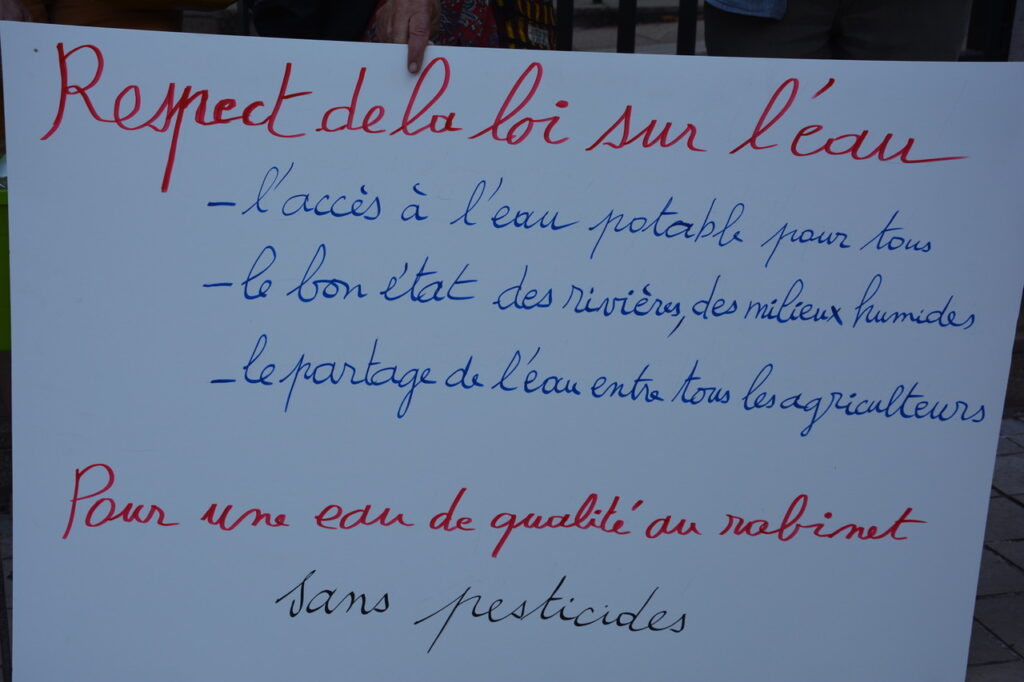 Respect de la loi sur l'eau
- l'accès à l'eau potable pour tous
- le bon état des rivières, des milieux humides
- le partage de l'eau entre tous les agriculteurs
Pour une eau de qualité au robinet
sans pesticides